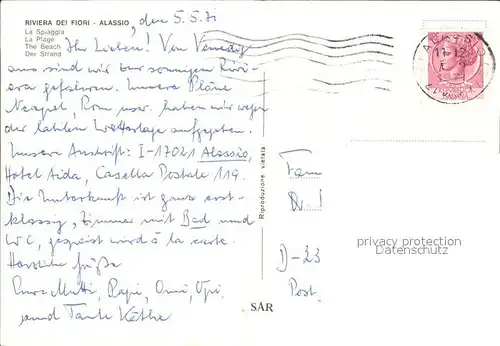 RIVIERA DEI FIORI - ALASSIO
La Spiaggia
La Plage
The Beach
Der Strand
, den 5.5.71
Ihr Lieben! Von Venedig
aus sind wir zur sonnigen Rivi-
era gefahren. Unsere Pläne
Neapel, Rom usw. haben wir wegen
der labilen Wetterlage aufgegeben.
Unsere Anschrift: I-17021 Alassio,
Hotel Aida, Casella Postale 119.
Die Unterkunft ist ganz erst-
klassig, Zimmer mit Bad und
WC, gespeist wird à la carte.
Herzliche Grüße
Eure Mutti, Papi, Omi, Opi,
und Tante Käthe
Riproduzione vietata
SAR
ALASSIO
11-12
Fam
Dr. I
D-23
Post.
privacy protection watermark